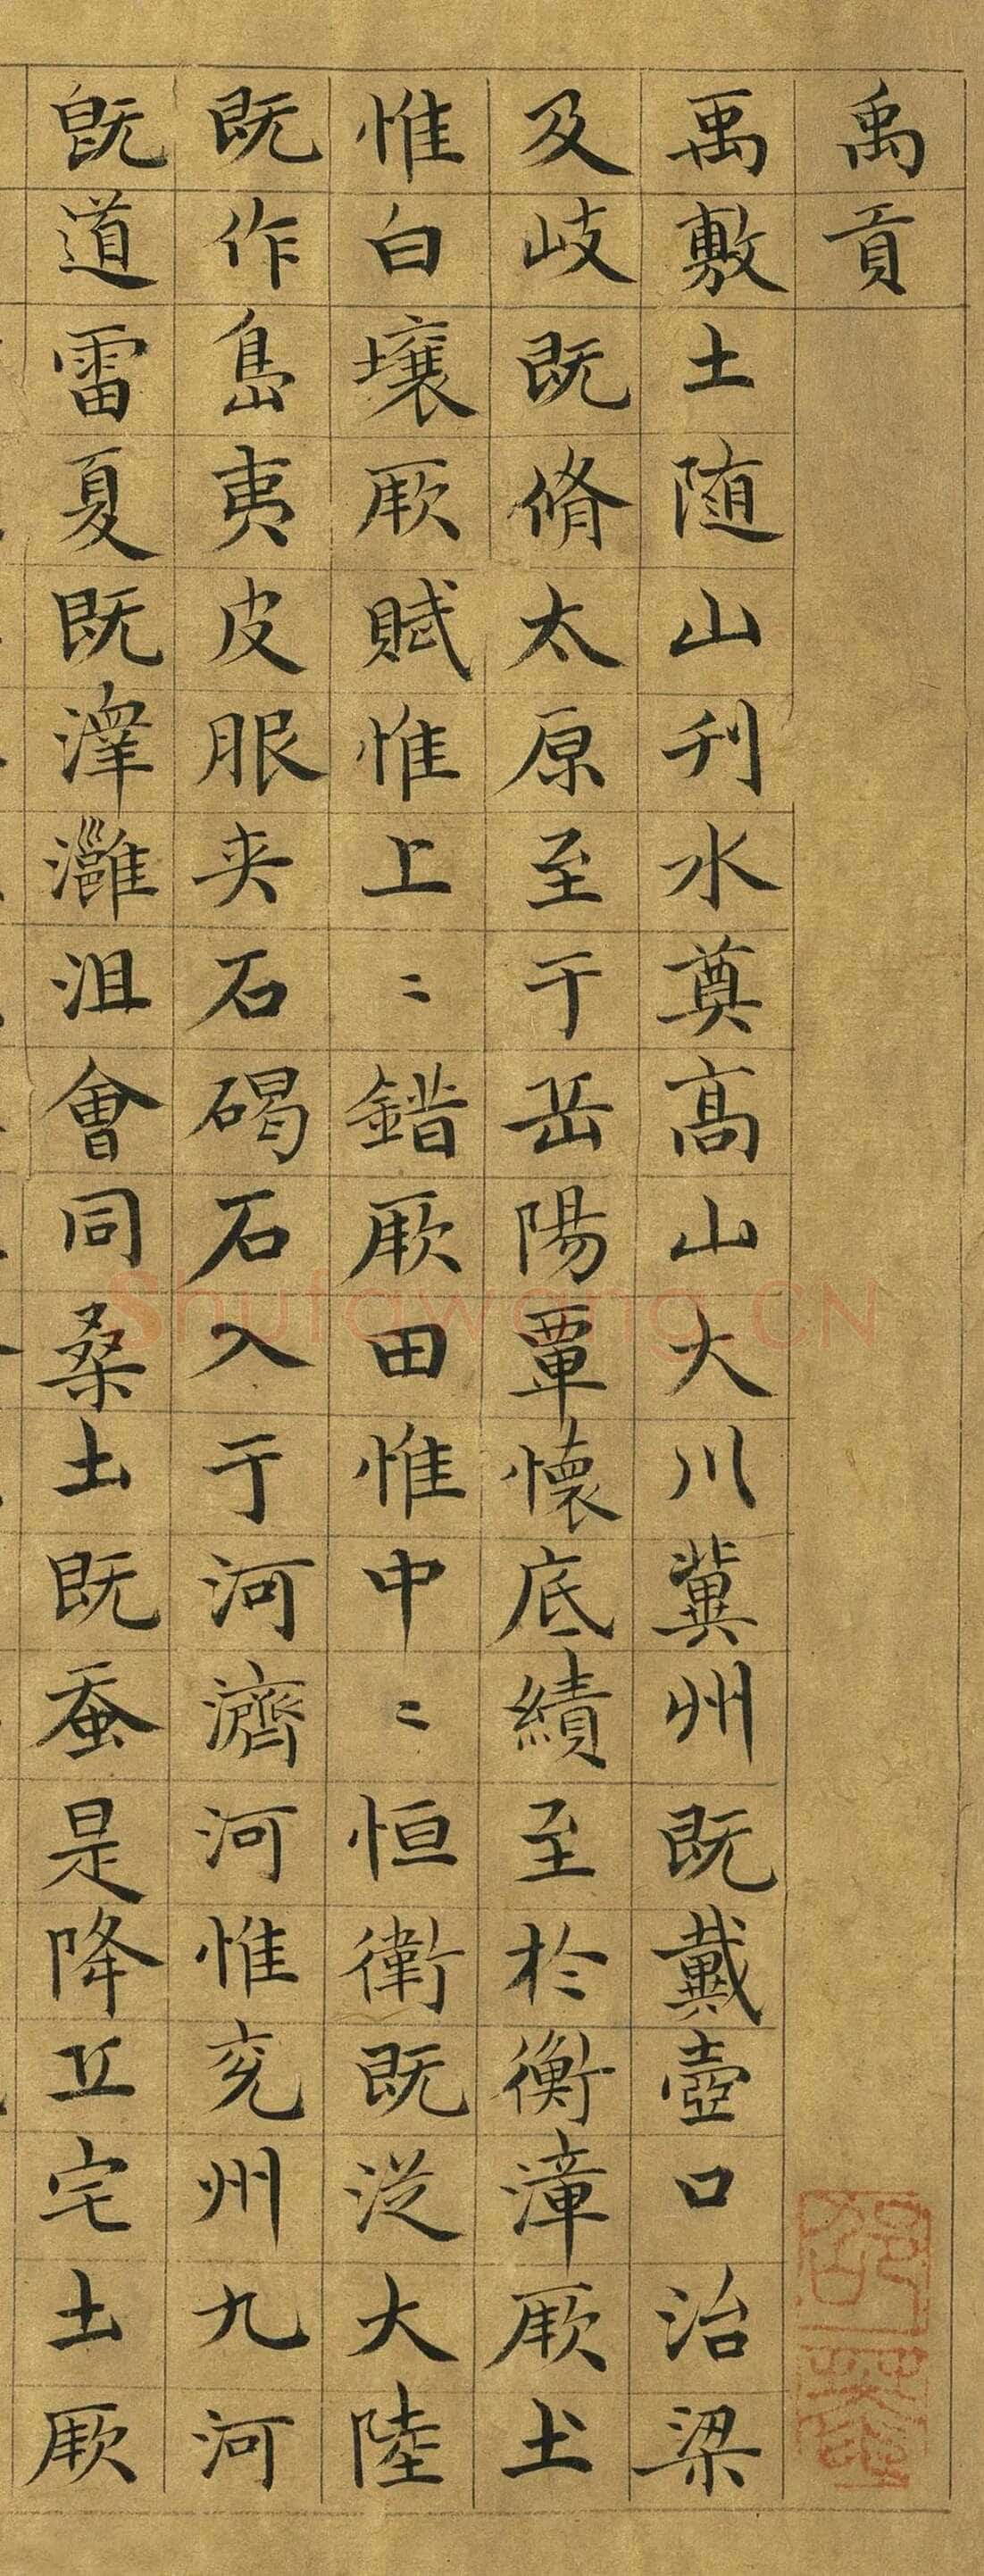 禹貢
禹敷土随山刋水奠高山大川冀州既戴壺口治梁
及岐既脩太原至于岳陽覃懷底績至於衡漳厥土
惟白壤厥賦惟上〻錯厥田惟中〻恒衛既従大陸
既作島夷皮服夹石碣石入于河濟河惟兖州九河
既道雷夏既澤灉沮會同桑土既蚕是降丘宅土厥
Shufawang.CN